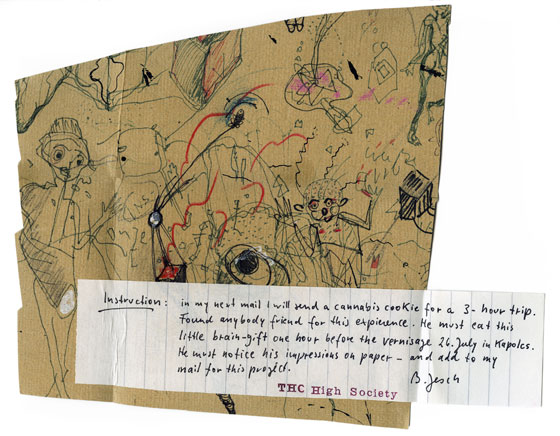 Instruction: in my next mail I will send a cannabis cookie for a 3-hour trip.
Found anybody friend for this expirience. He must eat this
little brain-gift one hour before the vernisage 26. July in Kapolcs.
He must notice his impressions on paper – and add to my
mail for this project.
B. Jesch
THC High Society